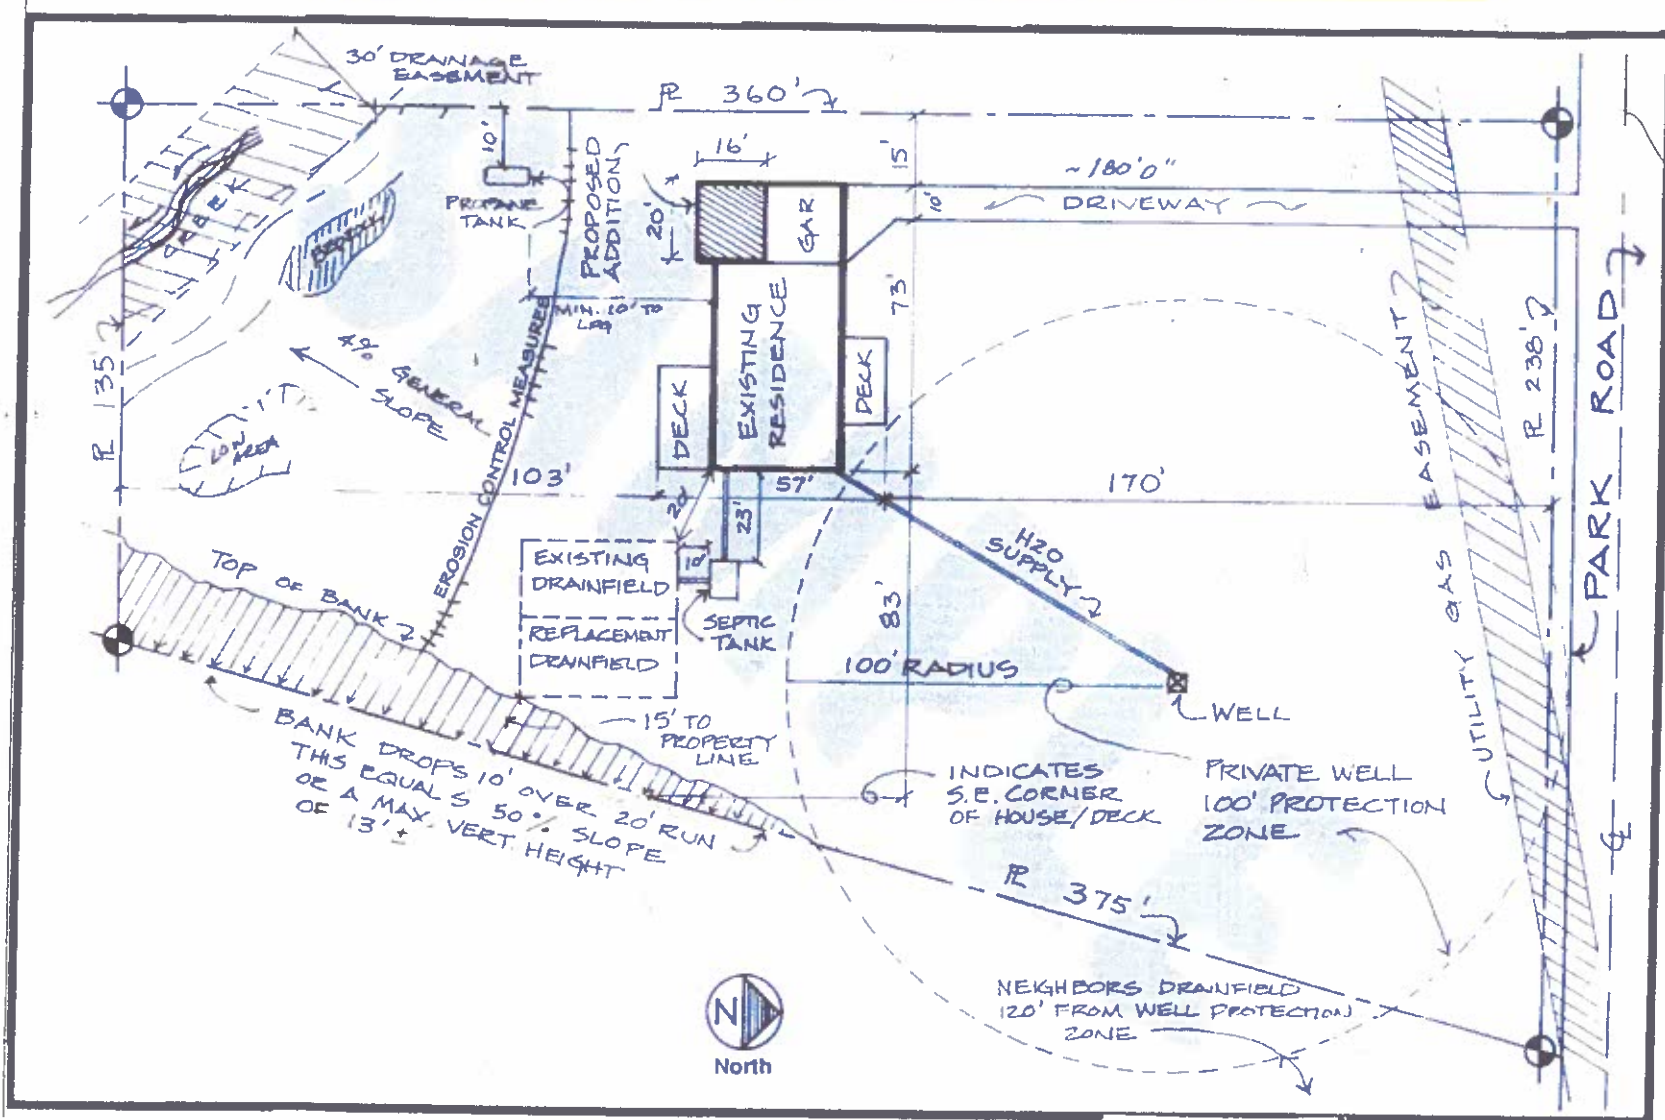 30' DRAINAGE
EASEMENT
PL 360'
16'
15'
~180'0"
DRIVEWAY
10'
10'
PROPANE
TANK
PROPOSED
ADDITION
20'
GAR
73'
MIN. 10' TO
LPG
EXISTING
RESIDENCE
DECK
DECK
4% GENERAL
SLOPE
LOW
AREA
PL 135'
EROSION CONTROL MEASURES
103'
57'
170'
20'
23'
10'
EXISTING
DRAINFIELD
REPLACEMENT
DRAINFIELD
SEPTIC
TANK
H2O
SUPPLY
83'
100' RADIUS
WELL
TOP OF BANK
15' TO
PROPERTY
LINE
BANK DROPS 10' OVER 20' RUN
THIS EQUALS 50% SLOPE
OR A MAX. VERT. HEIGHT
OF 13'±
INDICATES
S.E. CORNER
OF HOUSE/DECK
PRIVATE WELL
100' PROTECTION
ZONE
PL 375'
NEIGHBORS DRAINFIELD
120' FROM WELL PROTECTION
ZONE
UTILITY GAS EASEMENT
PL 238'
PARK ROAD
CL
N
North